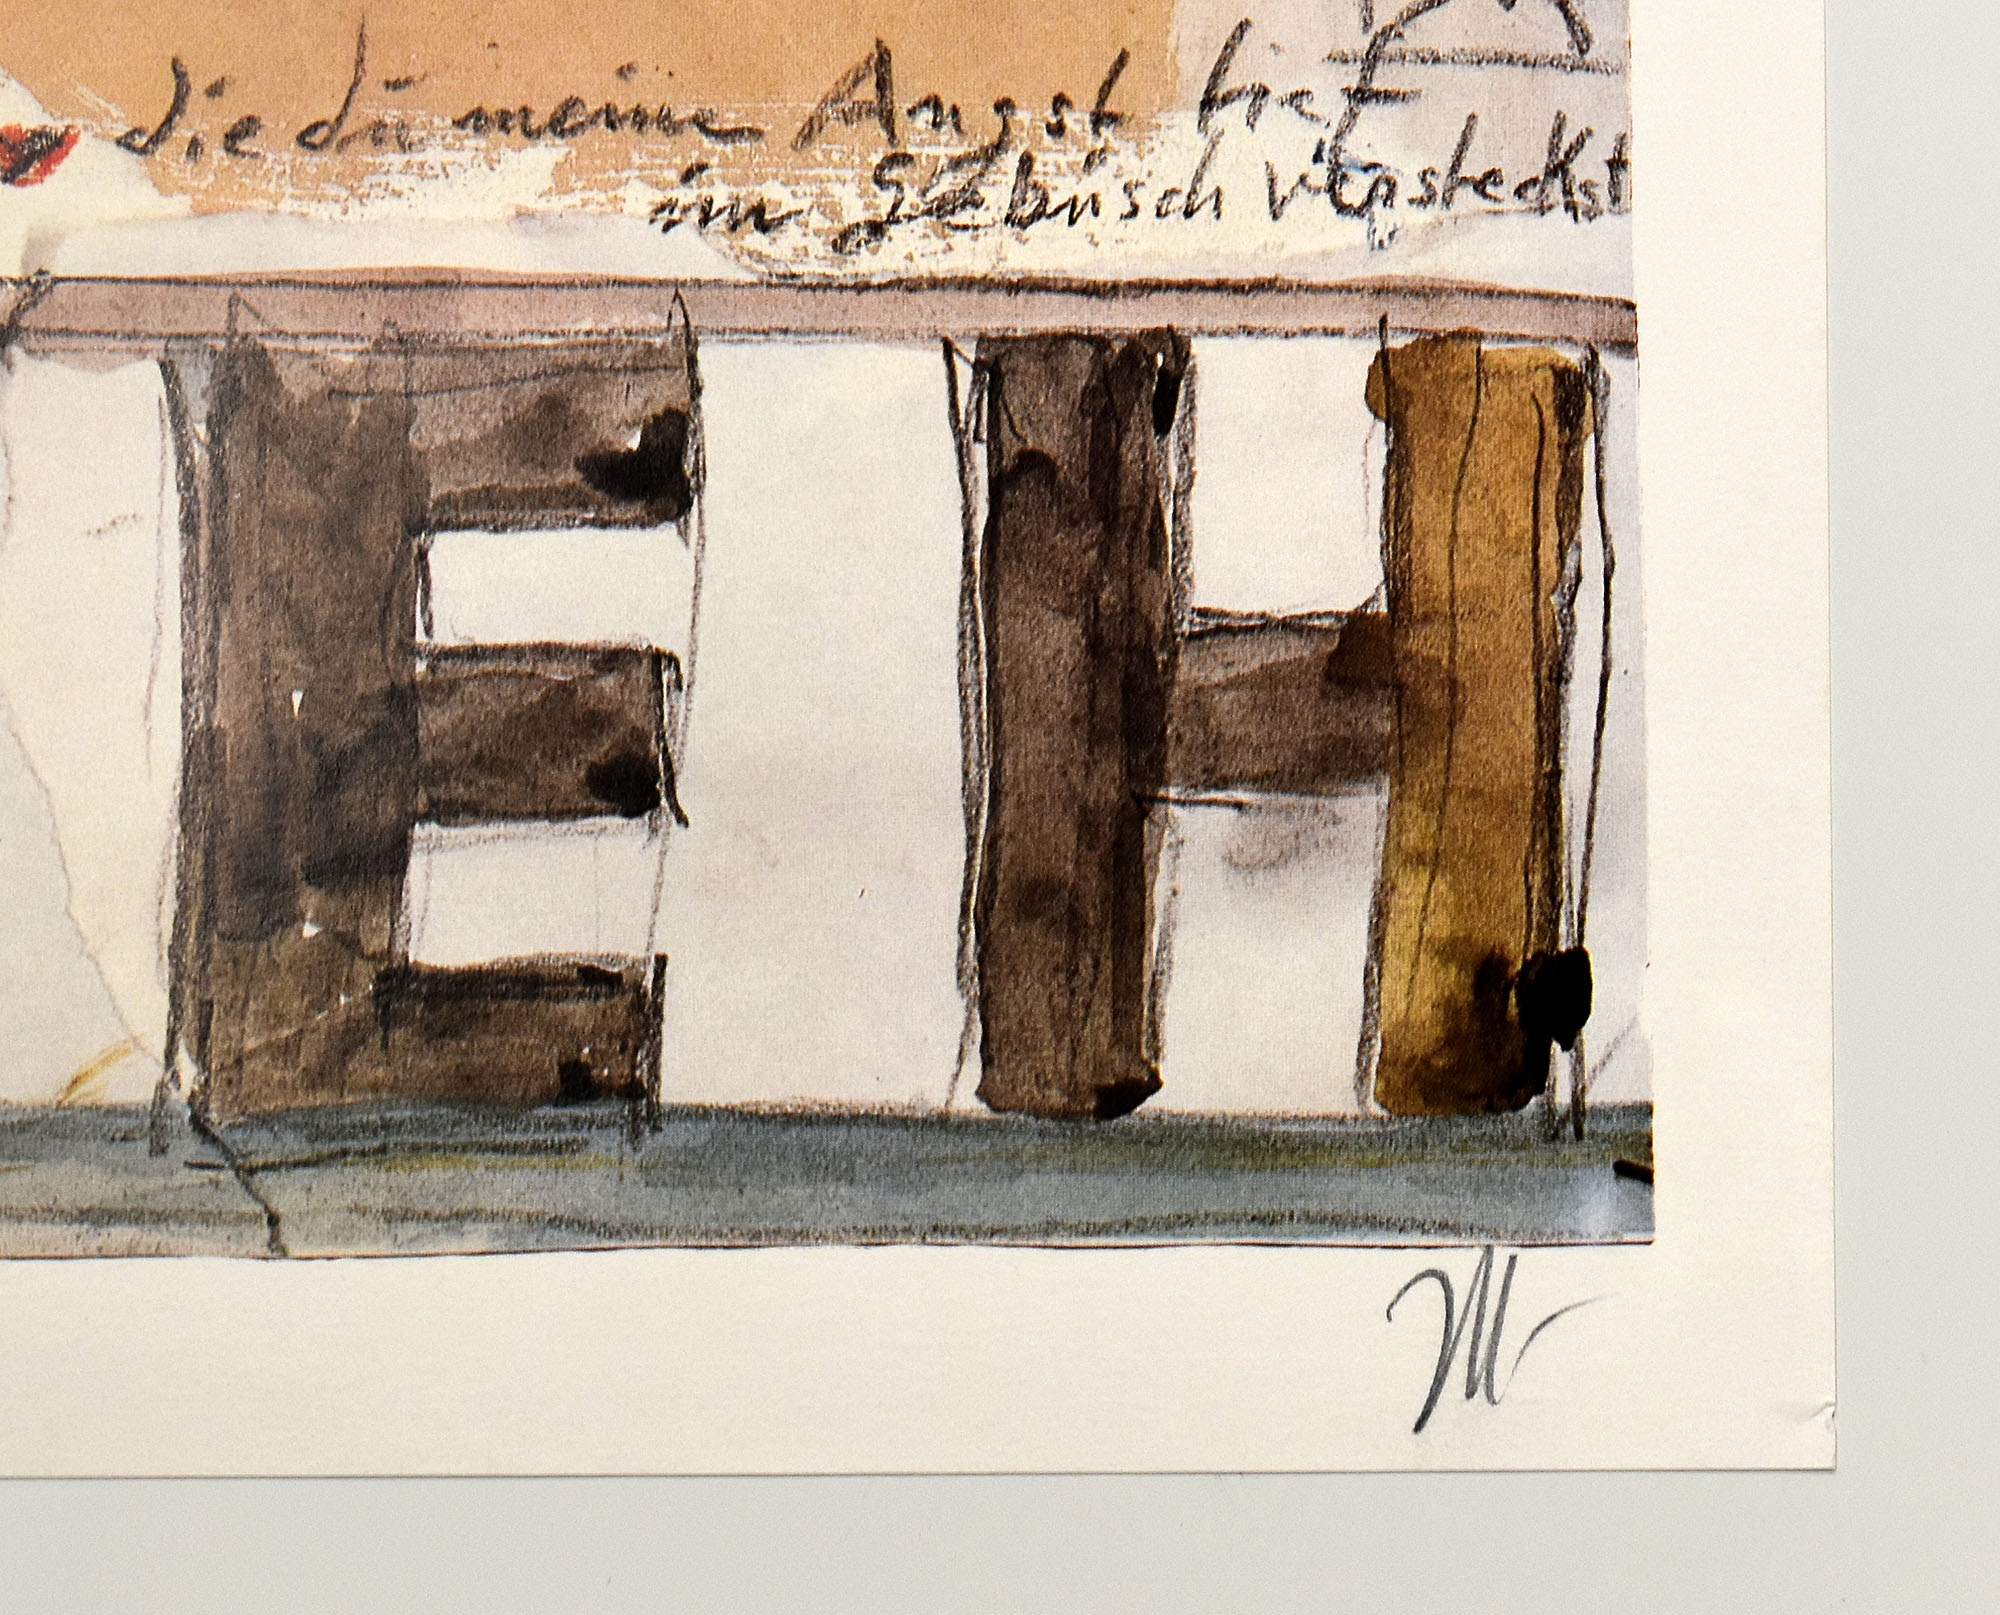 die du meine Angst tief
im Gebüsch versteckst
EH